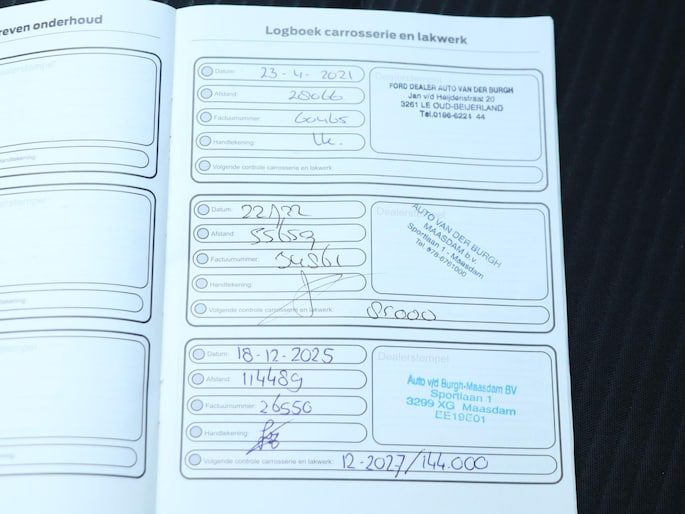 reven onderhoud
Logboek carrosserie en lakwerk
Datum: 23-4-2021
Afstand: 28066
Factuurnummer: 60465
Handtekening:
Volgende controle carrosserie en lakwerk:
Dealerstempel
FORD DEALER AUTO VAN DER BURGH
Jan v/d Heijdenstraat 20
3261 LE OUD-BEIJERLAND
Tel.0186-6221 44
Datum:
Afstand: 55659
Factuurnummer:
Handtekening:
Volgende controle carrosserie en lakwerk: 85000
Dealerstempel
AUTO VAN DER BURGH
MAASDAM b.v.
Sportlaan 1 - Maasdam
Tel. 078-6761000
Datum: 18-12-2025
Afstand: 114489
Factuurnummer: 26550
Handtekening:
Volgende controle carrosserie en lakwerk: 12-2027/144.000
Dealerstempel
Auto v/d Burgh-Maasdam BV
Sportlaan 1
3299 XG Maasdam
EE19E01